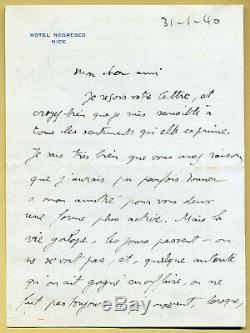 HOTEL NEGRESCO
NICE
31-1-40
Mon cher ami
Je reçois votre lettre, et
croyez bien que je suis sensible à
tous les sentiments qu'elle exprime.
Je sais très bien que vous avez raison
que j'aurais pu parfois donner
à mon amitié pour vous leur
une forme plus active. Mais la
vie galope, les jours passent – on
ne se voit pas, et, quelque autorité
qu'on ait gagné en affaire, on ne
fait pas toujours lorsque,